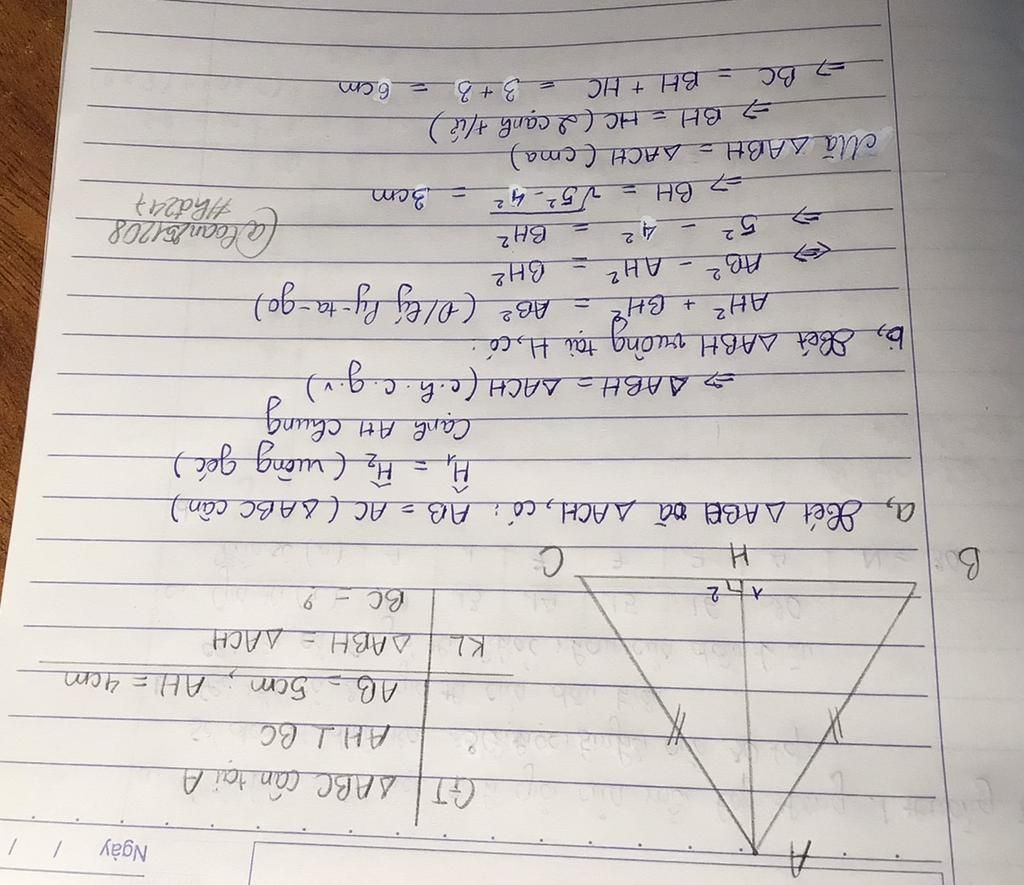 Ngày / /
A
GT ΔABC cân tại A
AH ⊥ BC
AB = 5cm ; AH = 4cm
KL ΔABH = ΔACH
BC = ?
1 2
B H C
a, Xét ΔABH và ΔACH, có : AB = AC (ΔABC cân)
Ĥ₁ = Ĥ₂ (vuông góc)
Cạnh AH chung
⇒ ΔABH = ΔACH (c.h.c.g.v)
b, Xét ΔABH vuông tại H, có :
AH² + BH² = AB² (Đ/lý Py-ta-go)
⇔ AB² - AH² = BH²
⇒ 5² - 4² = BH²
⇒ BH = √5² - 4² = 3cm
@loan251208
#hd247
Mà ΔABH = ΔACH (cma)
⇒ BH = HC (2 cạnh t/ứ)
⇒ BC = BH + HC = 3 + 3 = 6cm